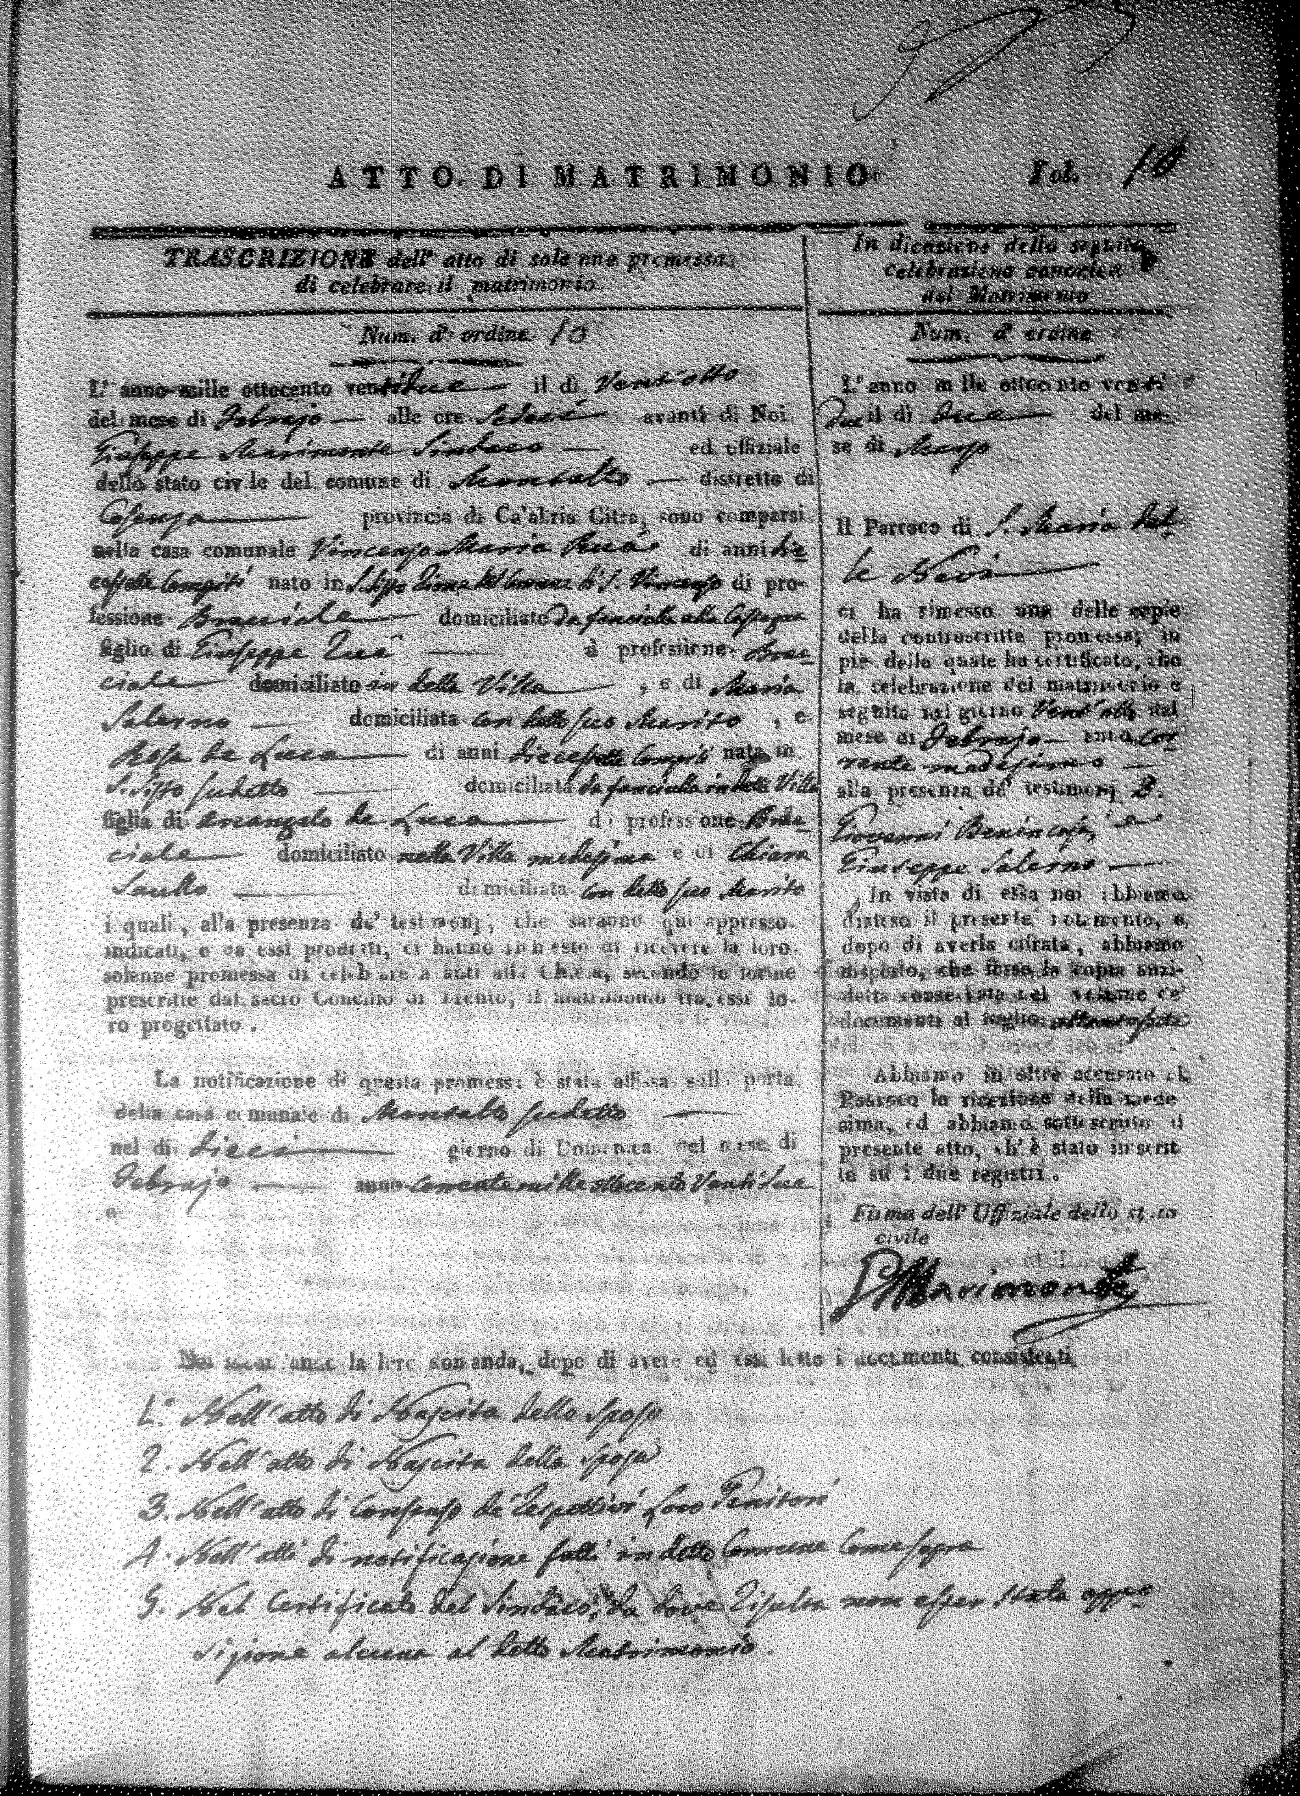 ATTO DI MATRIMONIO
Fol. 10
TRASCRIZIONE dell' atto di solenne promessa
di celebrare il matrimonio.
Num. d' ordine 10
L' anno mille ottocento ventidue il dì Vent'otto
del mese di Febrajo alle ore avanti di Noi
Giuseppe Marimonte Sindaco ed uffiziale
dello stato civile del comune di Montalto distretto di
Cosenza provincia di Calabria Citra, sono comparsi
nella casa comunale Vincenzo Maria di anni
compiti nato in di pro-
fessione Bracciale domiciliato da fanciullo alla
figlio di Giuseppe di professione Brac-
ciale domiciliato in detta Villa, e di Maria
Salerno domiciliata con detto suo Marito, e
Rosa de Luca di anni diecisette compiti nata in
S. Sisto sudetto domiciliata da fanciulla in detta Villa
figlia di Arcangelo de Luca di professione Brac-
ciale domiciliato nella Villa medesima e di Chiara
domiciliata con detto suo Marito
i quali, alla presenza de' testimonj, che saranno qui appresso
indicati, e da essi prodotti, ci hanno richiesto di ricevere la loro
solenne promessa di celebrare avanti alla Chiesa, secondo le forme
prescritte dal sacro Concilio di Trento, il matrimonio tra essi lo-
ro progettato.
La notificazione di questa promessa è stata affissa sulla porta
della casa comunale di Montalto sudetto
nel dì dieci giorno di Domenica nel mese di
Febrajo anno corrente mille ottocento Venti due
In dicazione della seguita
celebrazione canonica
del Matrimonio
Num. d' ordine
L' anno mille ottocento venti
due il dì due del me-
se di Marzo
Il Parroco di S. Maria del-
la Neve
ci ha rimesso una delle copie
della controscritta promessa; in
piè della quale ha certificato, che
la celebrazione del matrimonio è
seguita nel giorno Vent'otto del
mese di Febrajo anno cor-
rente medesimo
alla presenza de' testimonj D.
Giovanni Benincasa, e
Giuseppe Salerno
In vista di essa noi abbiamo
disteso il presente notamento, e,
dopo di averla cifrata, abbiamo
disposto, che fosse la copia anzi-
detta conservata nel volume de'
documenti al foglio
Abbiamo in oltre accusato al
Parroco la ricezione della mede
sima, ed abbiamo sottoscritto il
presente atto, ch' è stato inscrit
to su i due registri.
Firma dell' Uffiziale dello stato
civile
Marimonte
la loro domanda, dopo di avere ed essi letto i documenti consistenti
1.° Nell' atto di Nascita dello sposo
2. Nell' atto di Nascita della sposa
3. Nell' atto di Consenso de' respettivi loro Genitori
4. Nell' atti di notificazione fatti in detto Comune come sopra
5. Nel Certificato del Sindaco, da dove risulta non esser stata oppo-
sizione alcuna al detto Matrimonio.